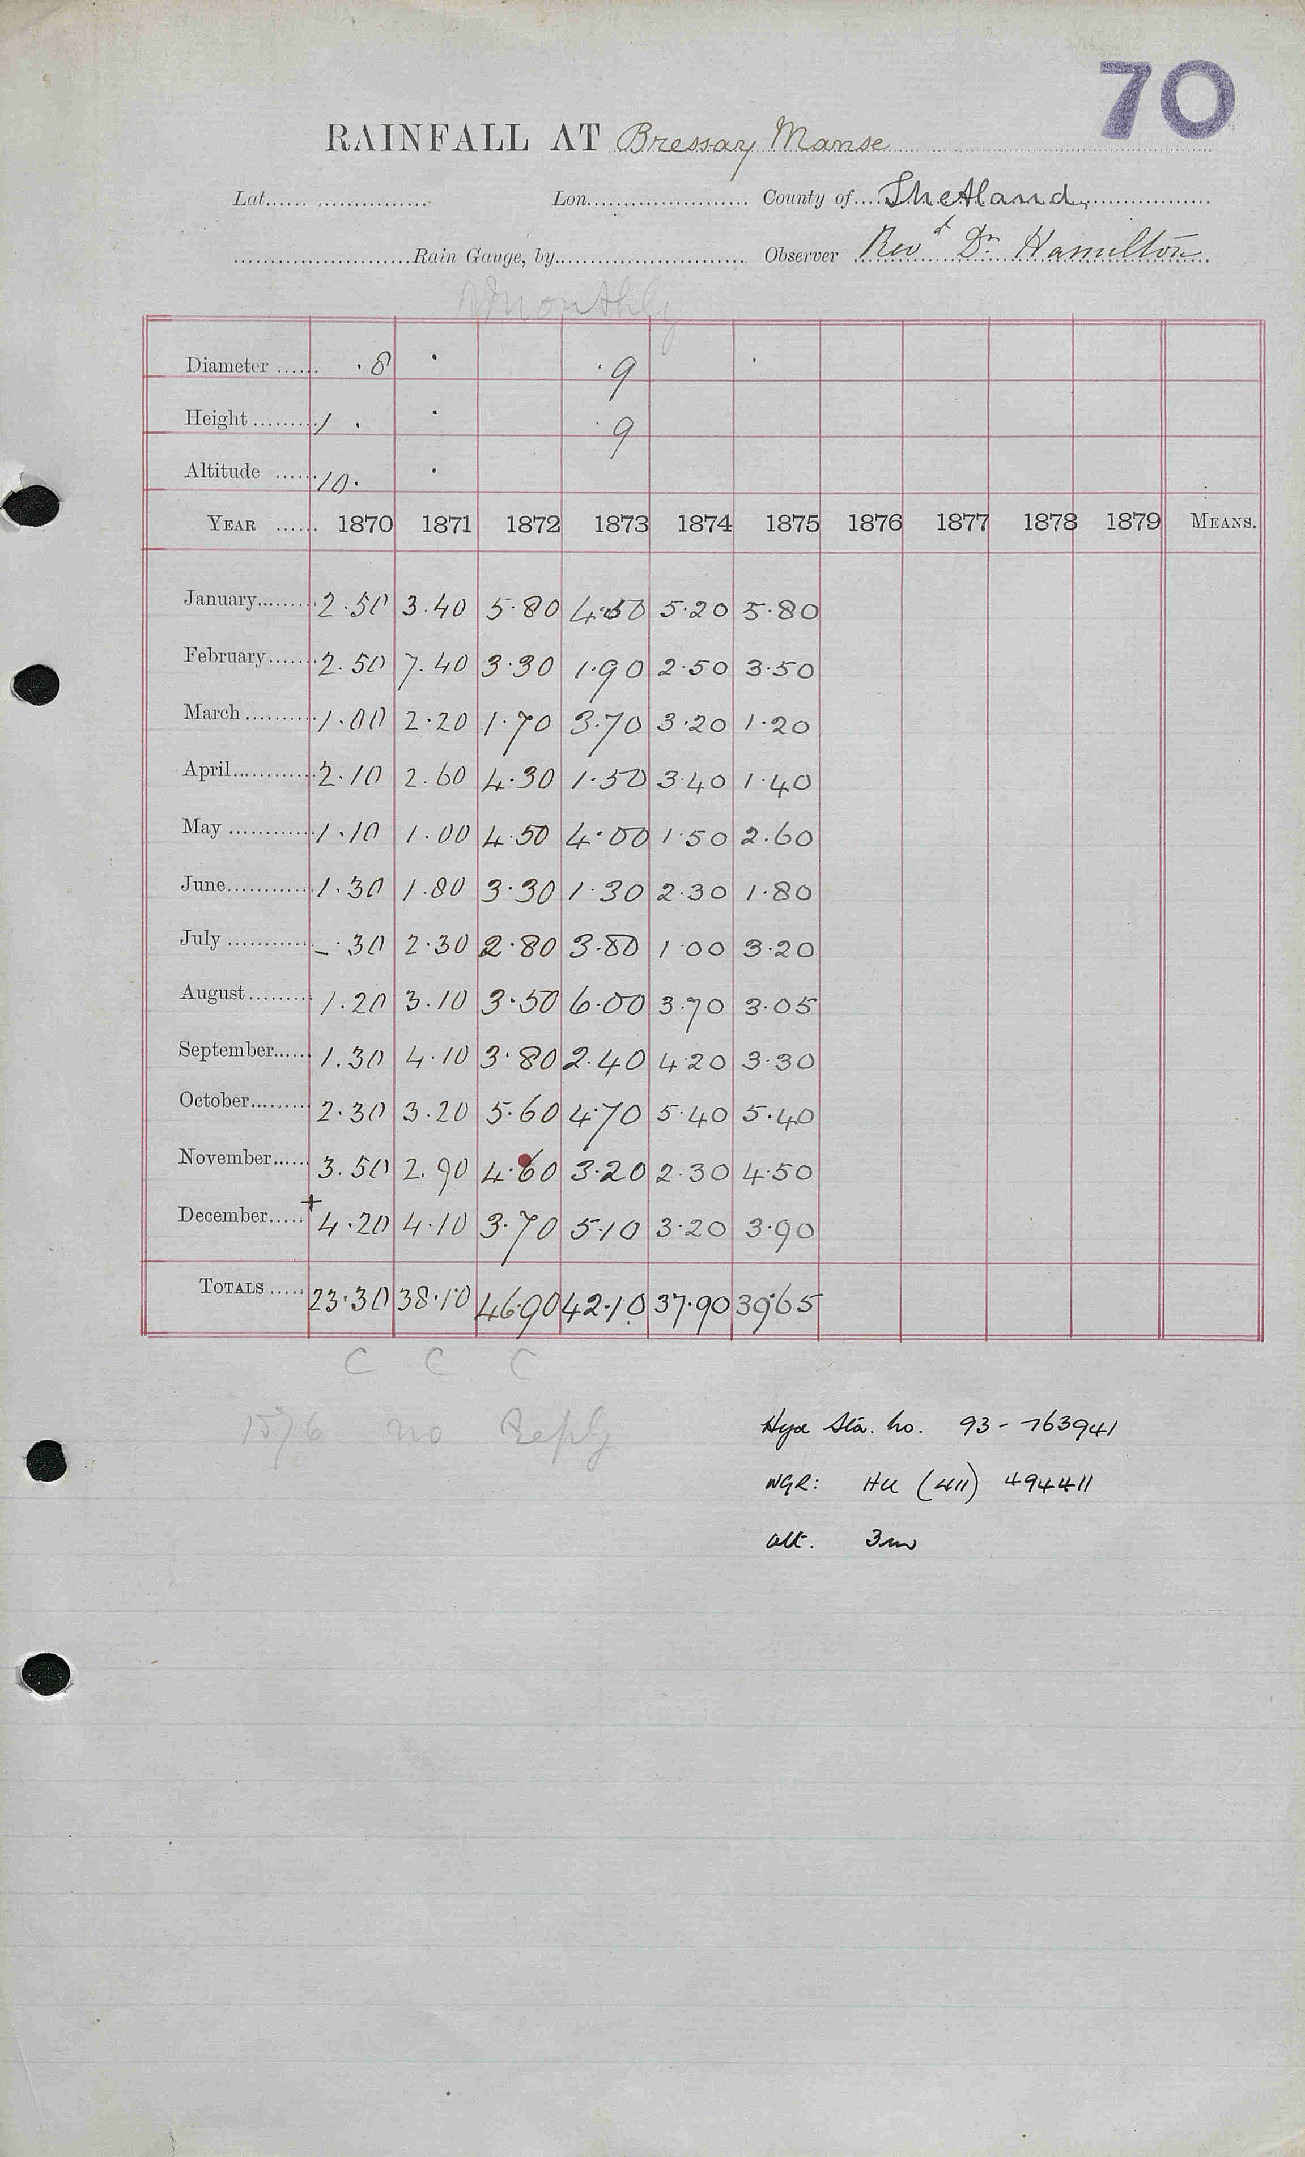 70
RAINFALL AT Bressay Manse
Lat. Lon. County of Shetland,
Rain Gauge, by Observer Revd Dr Hamilton
Monthly
Diameter ·8 · ·9 ·
Height 1 · · ·9
Altitude 10· ·
YEAR 1870 1871 1872 1873 1874 1875 1876 1877 1878 1879 MEANS.
January 2·50 3·40 5·80 4·50 5·20 5·80
February 2·50 7·40 3·30 1·90 2·50 3·50
March 1·00 2·20 1·70 3·70 3·20 1·20
April 2·10 2·60 4·30 1·50 3·40 1·40
May 1·10 1·00 4·50 4·00 1·50 2·60
June 1·30 1·80 3·30 1·30 2·30 1·80
July –·30 2·30 2·80 3·80 1·00 3·20
August 1·20 3·10 3·50 6·00 3·70 3·05
September 1·30 4·10 3·80 2·40 4·20 3·30
October 2·30 3·20 5·60 4·70 5·40 5·40
November 3·50 2·90 4·60 3·20 2·30 4·50
December + 4·20 4·10 3·70 5·10 3·20 3·90
TOTALS 23·30 38·10 46·90 42·10 37·90 39·65
C C C
1876 no Reply
Hyd Sta. No. 93-763941
NGR: HU (411) 494411
alt. 3m